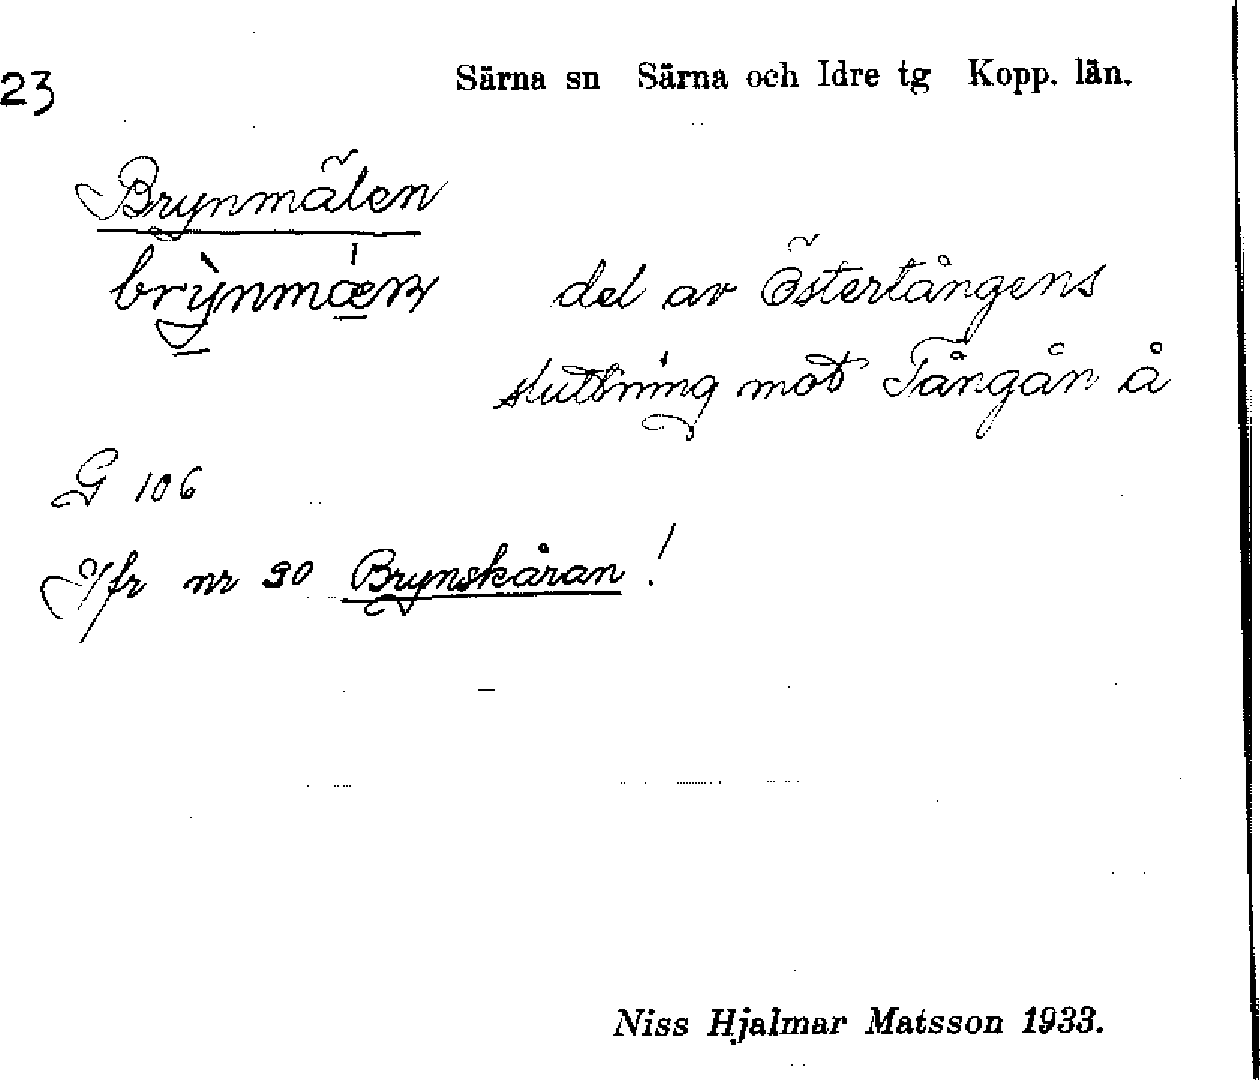 23
Särna sn Särna och Idre tg Kopp. län.
Brynmälen
del av Östertångens
sluttning mot Tångån å
G 106
Jfr nr 20 Brynskåran!
Niss Hjalmar Matsson 1933.